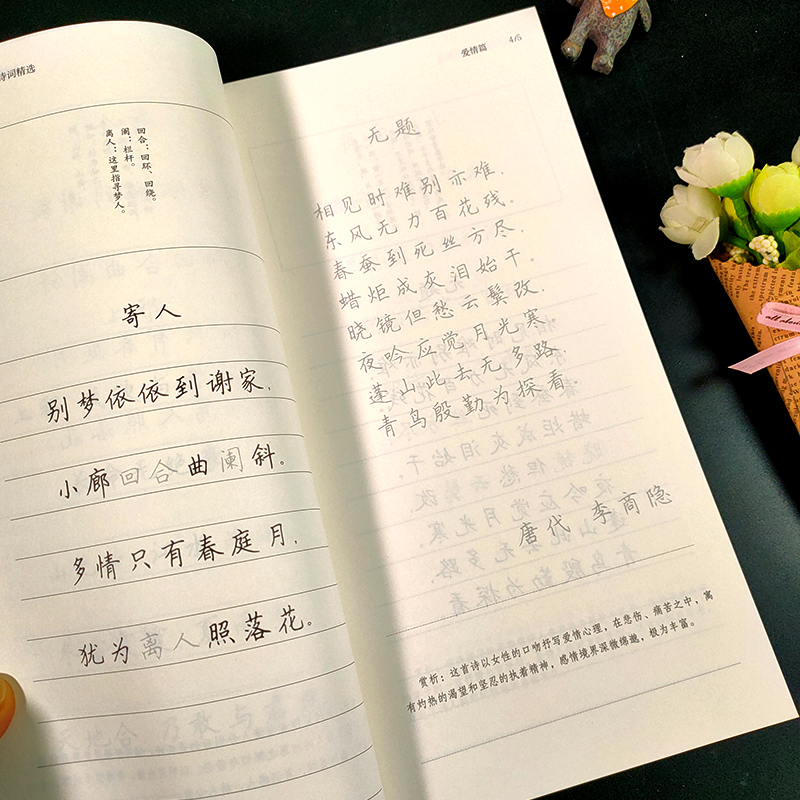 诗词精选
回合：回环、回绕。
阑：栏杆。
离人：这里指寻梦人。
寄人
别梦依依到谢家，
小廊回合曲阑斜。
多情只有春庭月，
犹为离人照落花。
爱情篇 4/5
无题
相见时难别亦难，
东风无力百花残。
春蚕到死丝方尽，
蜡炬成灰泪始干。
晓镜但愁云鬓改，
夜吟应觉月光寒。
蓬山此去无多路，
青鸟殷勤为探看。
唐代 李商隐
赏析：这首诗以女性的口吻抒写爱情心理，在悲伤、痛苦之中，寓
有灼热的渴望和坚忍的执着精神，感情境界深微绵邈，极为丰富。